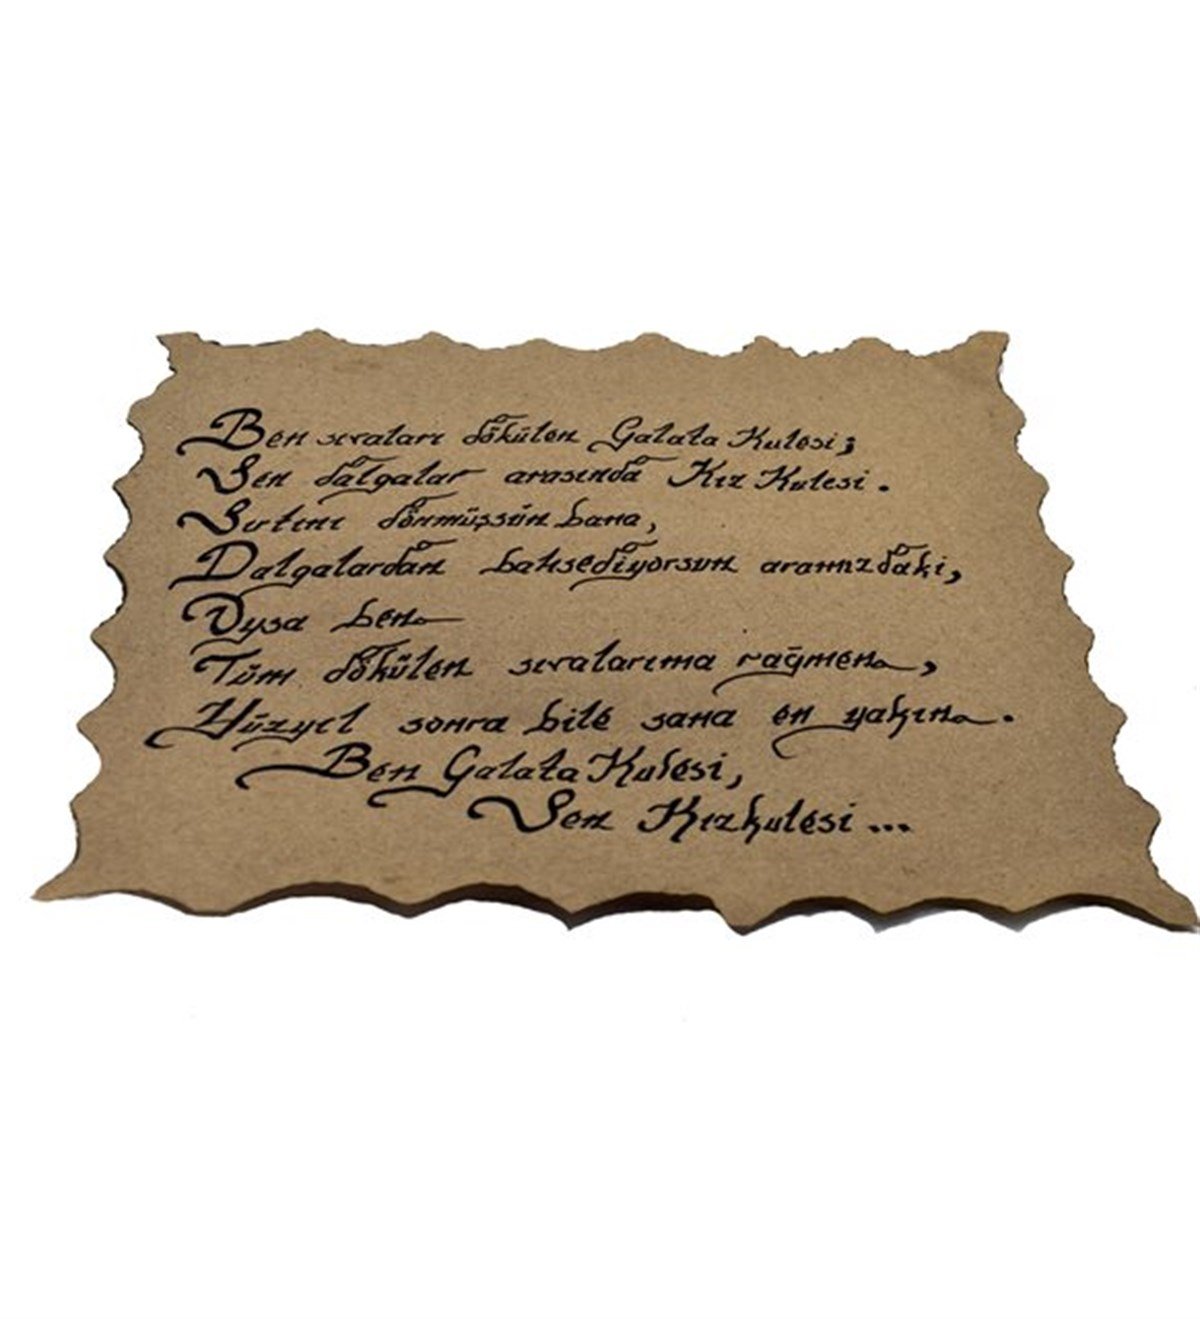 Ben sıvaları dökülen Galata Kulesi;
Sen dalgalar arasında Kız Kulesi.
Sırtını dönmüşsün bana,
Dalgalardan bahsediyorsun aramızdaki,
Oysa ben
Tüm dökülen sıvalarıma rağmen,
Yüzyıl sonra bile sana en yakın.
Ben Galata Kulesi,
Sen Kızkulesi...